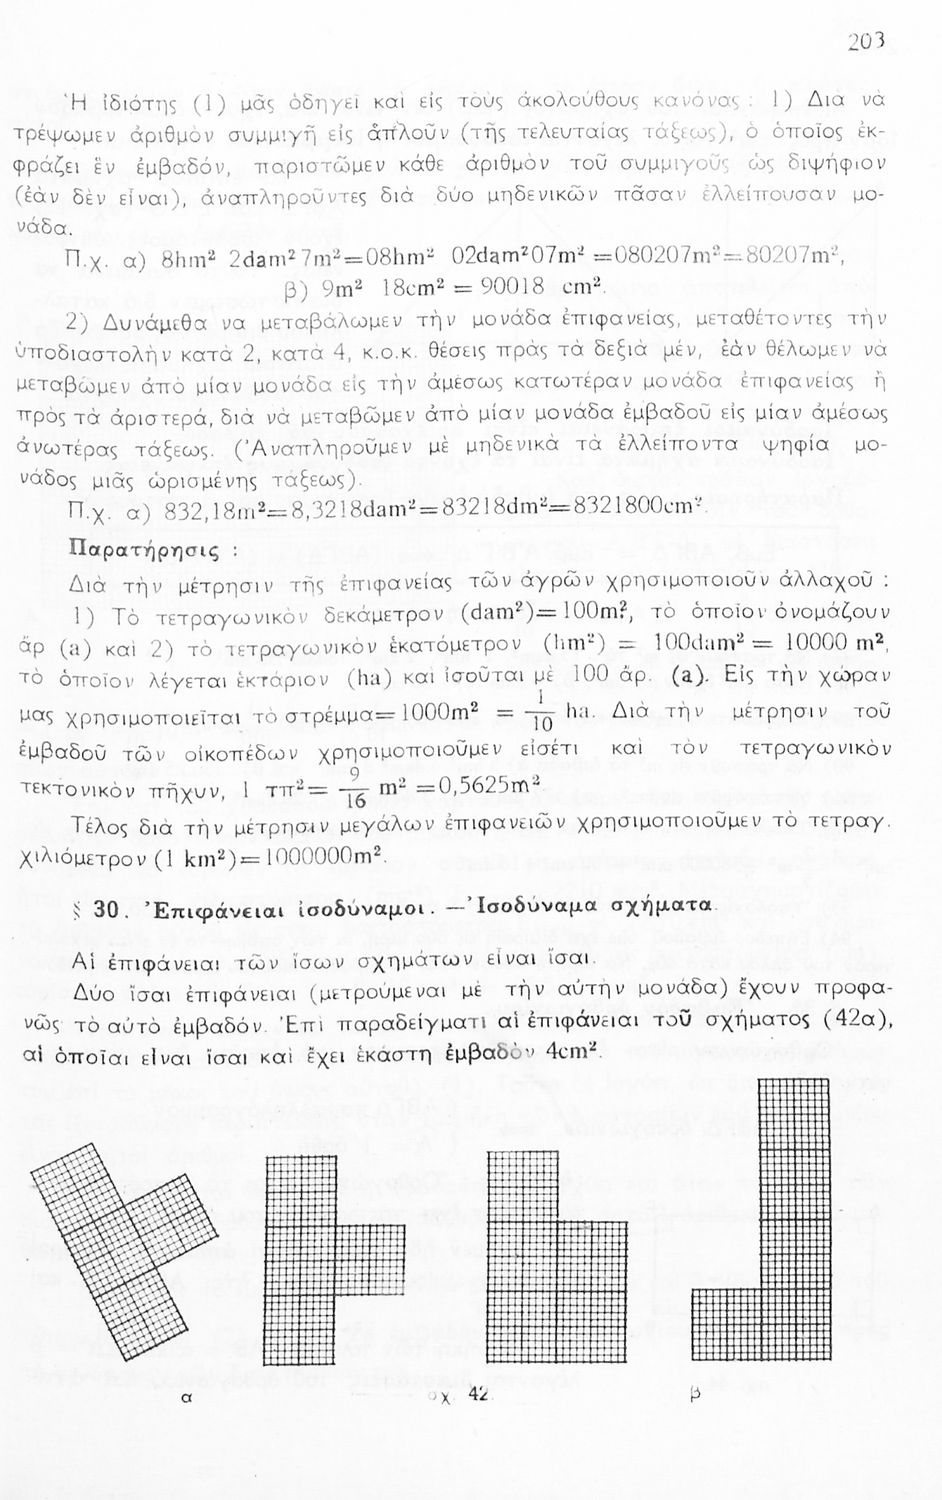 203
Ἡ ἰδιότης (1) μᾶς ὁδηγεῖ καὶ εἰς τοὺς ἀκολούθους κανόνας : 1) Διὰ νὰ
τρέψωμεν ἀριθμὸν συμμιγῆ εἰς ἁπλοῦν (τῆς τελευταίας τάξεως), ὁ ὁποῖος ἐκ-
φράζει ἓν ἐμβαδόν, παριστῶμεν κάθε ἀριθμὸν τοῦ συμμιγοῦς ὡς διψήφιον
(ἐὰν δὲν εἶναι), ἀναπληροῦντες διὰ δύο μηδενικῶν πᾶσαν ἐλλείπουσαν μο-
νάδα.
Π.χ. α) 8hm² 2dam² 7m²=08hm² 02dam²07m² =080207m²=80207m²,
β) 9m² 18cm² = 90018 cm².
2) Δυνάμεθα να μεταβάλωμεν τὴν μονάδα ἐπιφανείας, μεταθέτοντες τὴν
ὑποδιαστολὴν κατὰ 2, κατὰ 4, κ.ο.κ. θέσεις πρὸς τὰ δεξιὰ μέν, ἐὰν θέλωμεν νὰ
μεταβῶμεν ἀπὸ μίαν μονάδα εἰς τὴν ἀμέσως κατωτέραν μονάδα ἐπιφανείας ἢ
πρὸς τὰ ἀριστερά, διὰ νὰ μεταβῶμεν ἀπὸ μίαν μονάδα ἐμβαδοῦ εἰς μίαν ἀμέσως
ἀνωτέρας τάξεως. (Ἀναπληροῦμεν μὲ μηδενικὰ τὰ ἐλλείποντα ψηφία μο-
νάδος μιᾶς ὡρισμένης τάξεως).
Π.χ. α) 832,18m²=8,3218dam²=83218dm²=8321800cm².
Παρατήρησις :
Διὰ τὴν μέτρησιν τῆς ἐπιφανείας τῶν ἀγρῶν χρησιμοποιοῦν ἀλλαχοῦ :
1) Τὸ τετραγωνικὸν δεκάμετρον (dam²)=100m², τὸ ὁποῖον ὀνομάζουν
ἄρ (a) καὶ 2) τὸ τετραγωνικὸν ἑκατόμετρον (hm²) = 100dam² = 10000 m²,
τὸ ὁποῖον λέγεται ἑκτάριον (ha) καὶ ἰσοῦται μὲ 100 ἄρ. (a). Εἰς τὴν χώραν
μας χρησιμοποιεῖται τὸ στρέμμα=1000m² = 1/10 ha. Διὰ τὴν μέτρησιν τοῦ
ἐμβαδοῦ τῶν οἰκοπέδων χρησιμοποιοῦμεν εἰσέτι καὶ τὸν τετραγωνικὸν
τεκτονικὸν πῆχυν, 1 τπ²= 9/16 m² =0,5625m²
Τέλος διὰ τὴν μέτρησιν μεγάλων ἐπιφανειῶν χρησιμοποιοῦμεν τὸ τετραγ.
χιλιόμετρον (1 km²)=1000000m².
§ 30. Ἐπιφάνειαι ἰσοδύναμοι. — Ἰσοδύναμα σχήματα.
Αἱ ἐπιφάνειαι τῶν ἴσων σχημάτων εἶναι ἴσαι.
Δύο ἴσαι ἐπιφάνειαι (μετρούμεναι μὲ τὴν αὐτὴν μονάδα) ἔχουν προφα-
νῶς τὸ αὐτὸ ἐμβαδόν. Ἐπὶ παραδείγματι αἱ ἐπιφάνειαι τοῦ σχήματος (42α),
αἱ ὁποῖαι εἶναι ἴσαι καὶ ἔχει ἑκάστη ἐμβαδὸν 4cm².
α σχ. 42 β